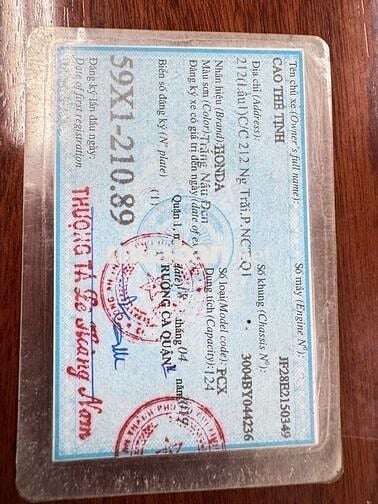 Tên chủ xe (Owner's full name):
CAO THẾ TỈNH
Địa chỉ (Address):
212(Lầu1)C/C 212 Ng Trãi.P.NCT.Q1
Nhãn hiệu (Brand): HONDA
Màu sơn (Color): Trắng Nâu Đen
Đăng ký xe có giá trị đến ngày (date of
Biển số đăng ký (N° plate)
59X1-210.89
Đăng ký lần đầu ngày:
Date of first registration
Số máy (Engine N°): JF28E2150349
Số khung (Chassis N°): 3004BY044236
Số loại (Model code): PCX
Dung tích (Capacity): 124
(1)
Quận 1,
tháng 04 năm
TRƯỞNG CA QUẬN
THƯỢNG TÁ Lê Hoàng Nam